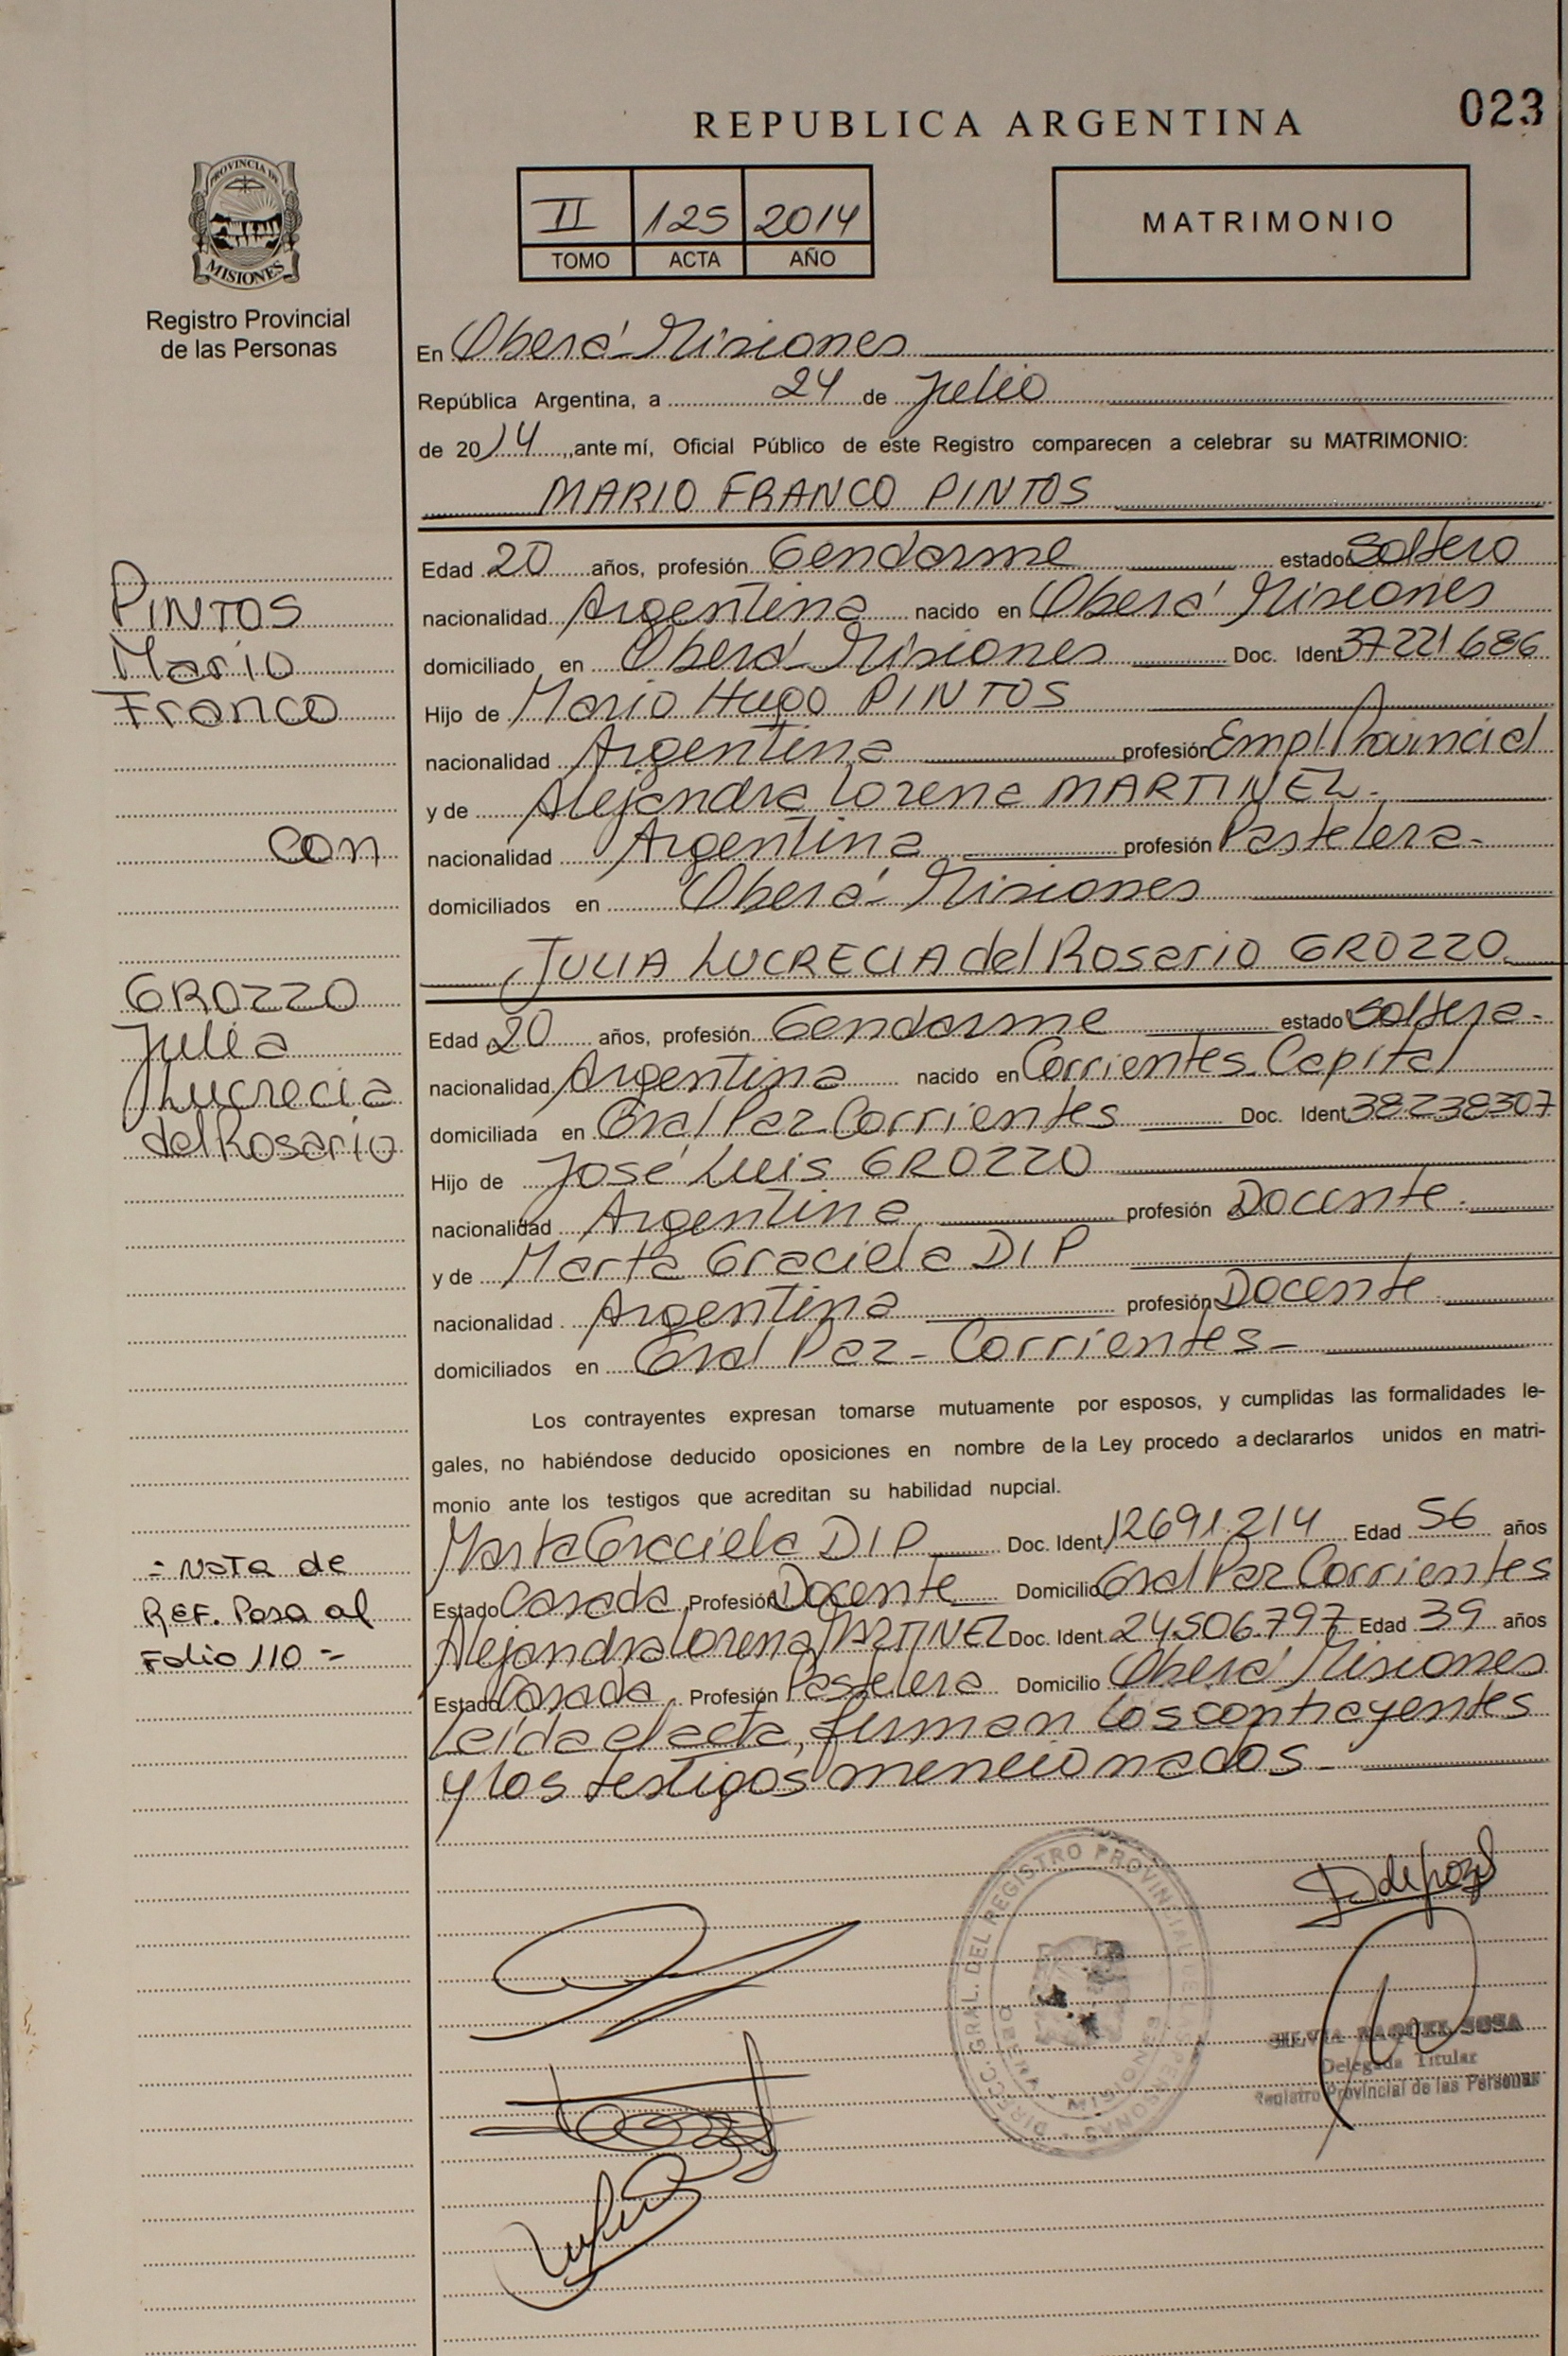 REPUBLICA ARGENTINA
023
PROVINCIA DE
MISIONES
Registro Provincial
de las Personas
II 125 2014
TOMO ACTA AÑO
MATRIMONIO
En Oberá - Misiones
República Argentina, a 24 de Julio
de 2014, ante mí, Oficial Público de este Registro comparecen a celebrar su MATRIMONIO:
MARIO FRANCO PINTOS
Edad 20 años, profesión Gendarme estado Soltero
nacionalidad Argentina nacido en Oberá Misiones
domiciliado en Oberá - Misiones Doc. Ident 37221686
Hijo de Mario Hugo PINTOS
nacionalidad Argentina profesión Empl. Provincial
y de Alejandra Lorena MARTINEZ.
nacionalidad Argentina profesión Pastelera -
domiciliados en Oberá - Misiones
JULIA LUCRECIA del Rosario GROZZO
Edad 20 años, profesión Gendarme estado Soltera -
nacionalidad Argentina nacido en Corrientes Capital
domiciliada en Gral Paz Corrientes Doc. Ident 38238307
Hijo de José Luis GROZZO
nacionalidad Argentina profesión Docente -
y de Marta Graciela DIP
nacionalidad Argentina profesión Docente
domiciliados en Gral Paz - Corrientes -
Los contrayentes expresan tomarse mutuamente por esposos, y cumplidas las formalidades le-
gales, no habiéndose deducido oposiciones en nombre de la Ley procedo a declararlos unidos en matri-
monio ante los testigos que acreditan su habilidad nupcial.
Marta Graciela DIP Doc. Ident 12691.214 Edad 56 años
Estado Casada Profesión Docente Domicilio Gral Paz Corrientes
Alejandra Lorena MARTINEZ Doc. Ident. 24.506.797 Edad 39 años
Estado Casada Profesión Pastelera Domicilio Oberá Misiones
Leída el acta, firman los contrayentes
y los testigos mencionados -
PINTOS
Mario
Franco
con
GROZZO
Julia
Lucrecia
del Rosario
- Nota de
REF. Pasa al
Folio 110 =
DIRECC. GRAL. DEL REGISTRO PROVINCIAL DE LAS PERSONAS
MISIONES
SILVIA RAQUEL SOSA
Delegada Titular
Registro Provincial de las Personas